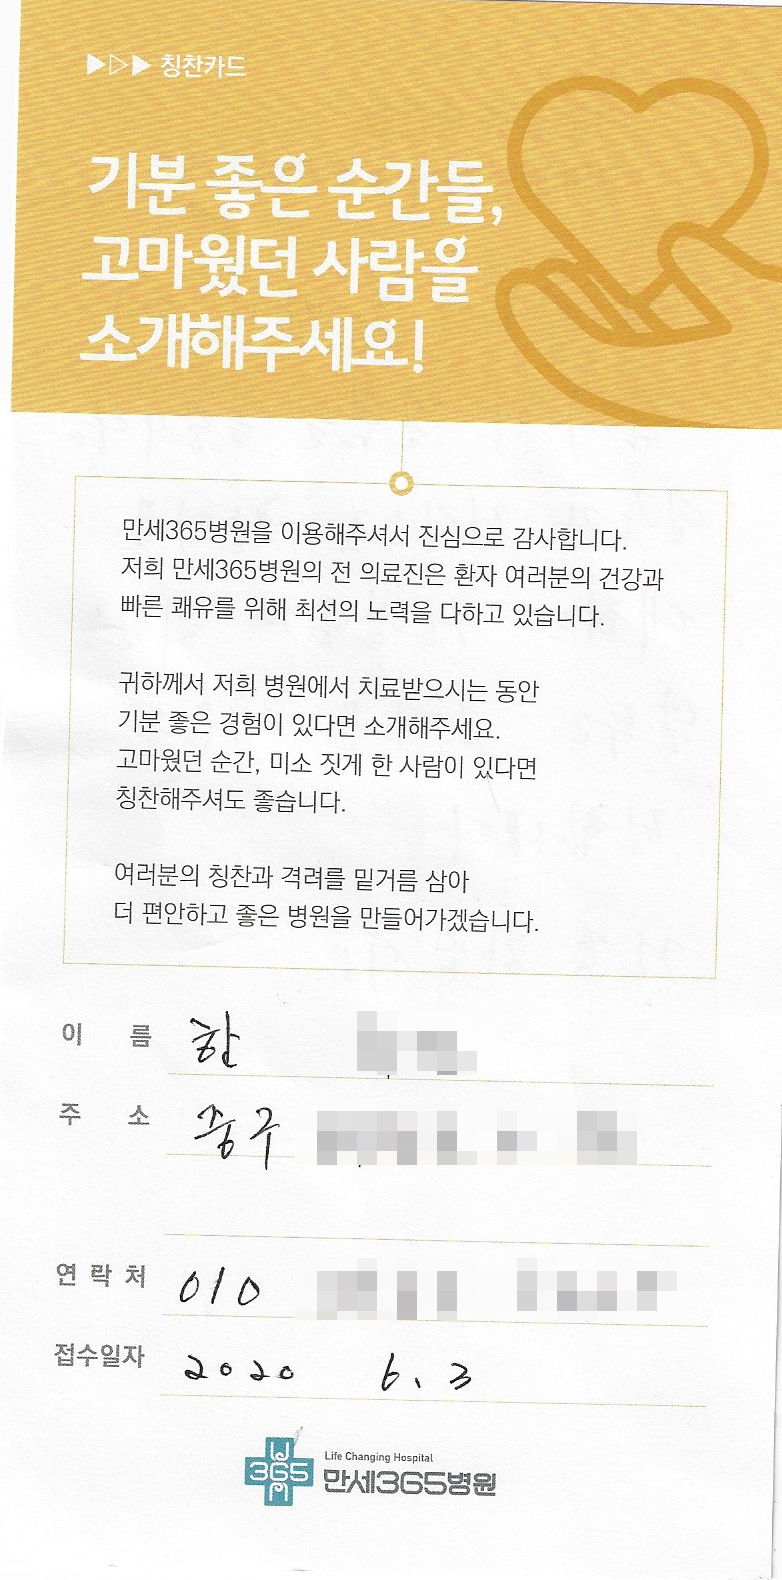 칭찬카드
기분 좋은 순간들,
고마웠던 사람을
소개해주세요!
만세365병원을 이용해주셔서 진심으로 감사합니다.
저희 만세365병원의 전 의료진은 환자 여러분의 건강과
빠른 쾌유를 위해 최선의 노력을 다하고 있습니다.
귀하께서 저희 병원에서 치료받으시는 동안
기분 좋은 경험이 있다면 소개해주세요.
고마웠던 순간, 미소 짓게 한 사람이 있다면
칭찬해주셔도 좋습니다.
여러분의 칭찬과 격려를 밑거름 삼아
더 편안하고 좋은 병원을 만들어가겠습니다.
이 름 한
주 소 중구
연 락 처 010
접수일자 2020 6. 3
365
Life Changing Hospital
만세365병원